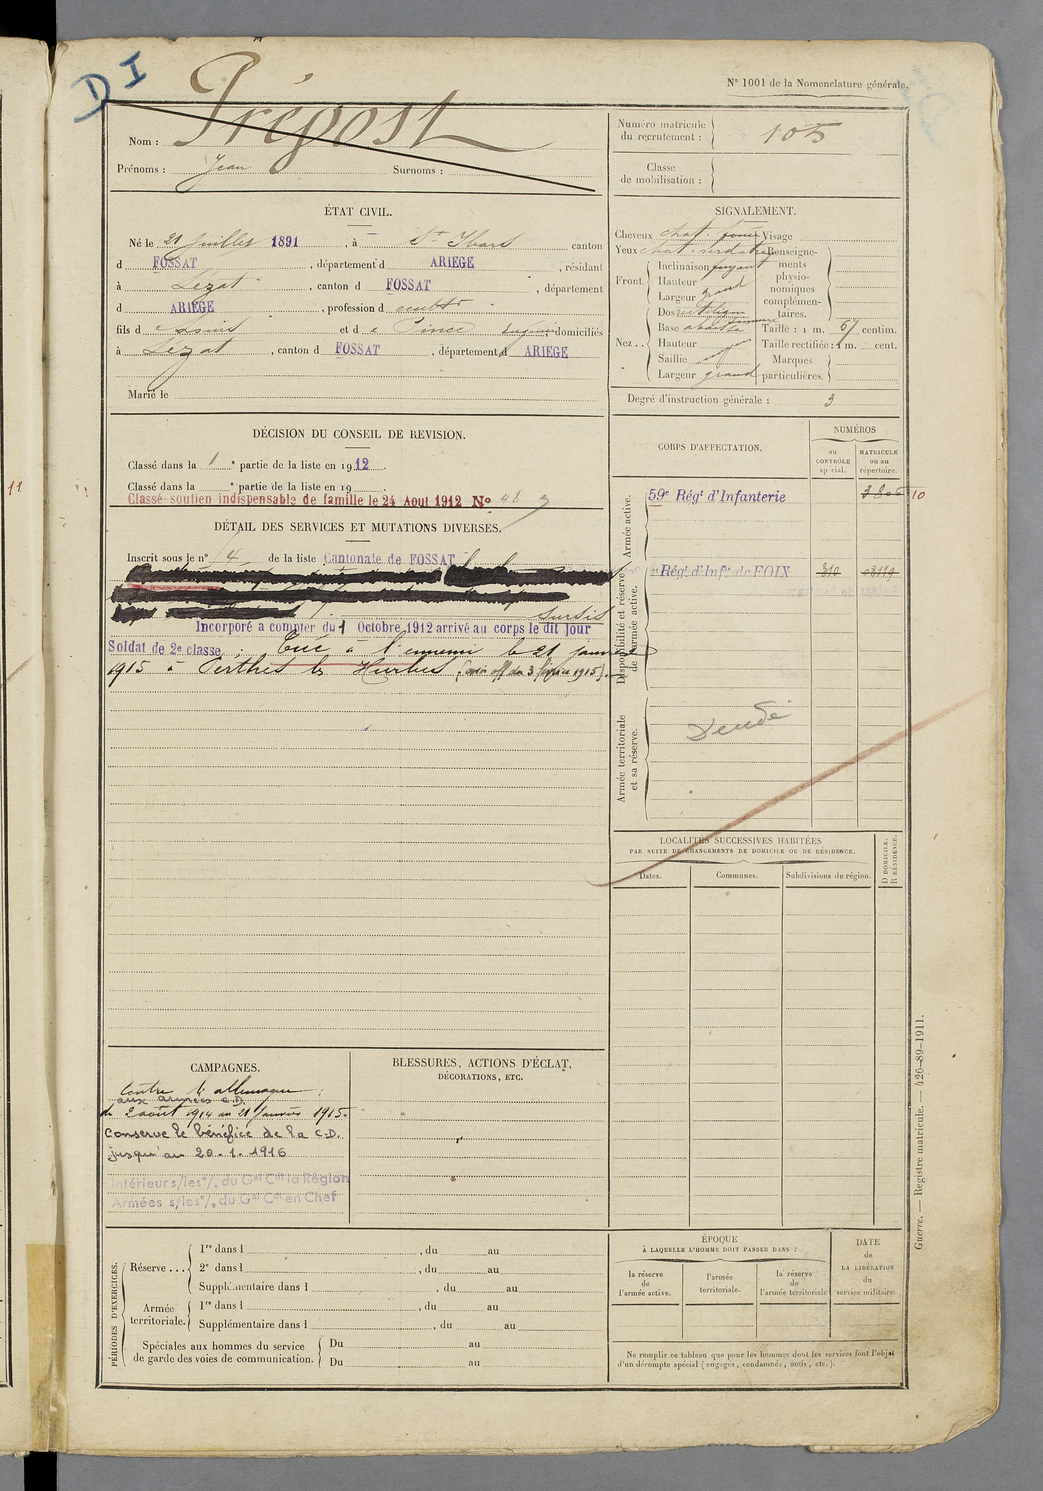 DI
N° 1001 de la Nomenclature générale.
Nom : Prépost
Prénoms : Jean Surnoms :
Numéro matricule du recrutement : 105
Classe de mobilisation :
ÉTAT CIVIL.
Né le 21 Juillet 1891, à St Ybars canton
d FOSSAT, département d ARIEGE, résidant
à Lézat, canton d FOSSAT, département
d ARIEGE, profession d cultr
fils d e Louis et d e domiciliés
à Lézat, canton d FOSSAT, département d ARIEGE
Marié le
SIGNALEMENT.
Cheveux chat. foncé Visage
Yeux chat. verdâtre Renseigne-
ments
physio-
nomiques
complémen-
taires.
Front. Inclinaison fuyant
Hauteur
Largeur grand
Nez.. Dos rectiligne
Base abaissée
Hauteur
Saillie
Largeur grand
Taille : 1 m. 67 centim.
Taille rectifiée : 1 m. cent.
Marques particulières.
Degré d'instruction générale : 3
DÉCISION DU CONSEIL DE REVISION.
Classé dans la 1e partie de la liste en 1912.
Classé dans la e partie de la liste en 19
Classé soutien indispensable de famille le 24 Aout 1912 N° 48
DÉTAIL DES SERVICES ET MUTATIONS DIVERSES.
Inscrit sous le n° 4 de la liste Cantonale de FOSSAT
sursis
Incorporé à compter du 1 Octobre 1912 arrivé au corps le dit jour
Soldat de 2e classe ; Tué à l'ennemi le 21 janvier
1915 à Perthes les Hurlus (avis off du 3 février 1915).
CORPS D'AFFECTATION.
NUMÉROS
au CONTRÔLE spécial.
MATRICULE ou au répertoire.
Armée active.
59e Régt d'Infanterie 3806 10
Disponibilité et réserve de l'armée active.
Régt d'Infie de FOIX 310 08119
Armée territoriale et sa réserve.
LOCALITÉS SUCCESSIVES HABITÉES
PAR SUITE DE CHANGEMENTS DE DOMICILE OU DE RÉSIDENCE.
Dates. Communes. Subdivisions de région.
D DOMICILE.
R RÉSIDENCE.
CAMPAGNES.
Contre l'allemagne :
aux armées C.D.
du 2 août 1914 au 21 Janvier 1915.
Conserve le bénéfice de la C.D.
jusqu'au 20.1.1916
Intérieur s/les °/. du Gal Cdt la Région
Armées s/les °/. du Gal Cdt en Chef
BLESSURES, ACTIONS D'ÉCLAT,
DÉCORATIONS, ETC.
PÉRIODES D'EXERCICES.
Réserve ... 1re dans l , du au
2e dans l , du au
Supplémentaire dans l , du au
Armée territoriale. 1re dans l , du au
Supplémentaire dans l , du au
Spéciales aux hommes du service de garde des voies de communication.
Du au
Du au
ÉPOQUE
À LAQUELLE L'HOMME DOIT PASSER DANS :
la réserve de l'armée active.
l'armée territoriale.
la réserve de l'armée territoriale
DATE de LA LIBÉRATION du service militaire.
Ne remplir ce tableau que pour les hommes dont les services font l'objet
d'un décompte spécial (engagés, condamnés, omis, etc.).
Guerre. — Registre matricule. — 426-89-1911.
11